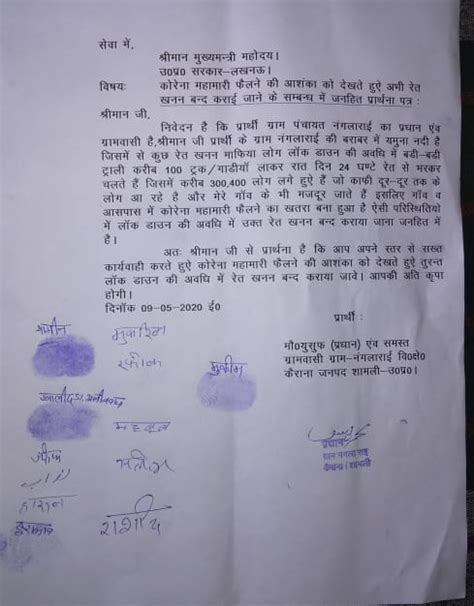 सेवा में,
श्रीमान मुख्यमन्त्री महोदय।
उ0प्र0 सरकार–लखनऊ।
विषयः कोरेना महामारी फैलने की आशंका को देखते हुऐ अभी रेत
खनन बन्द कराई जाने के सम्बन्ध में जनहित प्रार्थना पत्र :
श्रीमान जी,
निवेदन है कि प्रार्थी ग्राम पंचायत नंगलाराई का प्रधान एंव
ग्रामवासी है,श्रीमान जी प्रार्थी के ग्राम नंगलाराई की बराबर में यमुना नदी है
जिसमें से कुछ रेत खनन माफिया लोग लॉक डाउन की अवधि में बडी–बडी
ट्राली करीब 100 ट्रक/गाडीयॉ लाकर रात दिन 24 घण्टे रेत से भरकर
चलते हैं जिसमें करीब 300,400 लोग लगे हुऐ हैं जो काफी दूर–दूर तक के
लोग आ रहे है और मेरे गॉव के भी मजदूर जाते है इसलिए गॉव व
आसपास में कोरेना महामारी फैलने का खतरा बना हुआ है ऐसी परिस्थितियों
में लॉक डाउन की अवधि में उक्त रेत खनन बन्द कराया जाना जनहित में
है।
अतः श्रीमान जी से प्रार्थना है कि आप अपने स्तर से सख्त
कार्यवाही करते हुऐ कोरेना महामारी फैलने की आशंका को देखते हुऐ तुरन्त
लॉक डाउन की अवधि में रेत खनन बन्द कराया जावे। आपकी अति कृपा
होगी।
दिनॉक 09-05-2020 ई0
प्रार्थी :
मौ0युसुफ (प्रधान) एंव समस्त
ग्रामवासी ग्राम–नंगलाराई वि0क्षे0
कैराना जनपद शामली–उ0प्र0।
शमीन
मुकीम
प्रधान
कैराना (शामली)